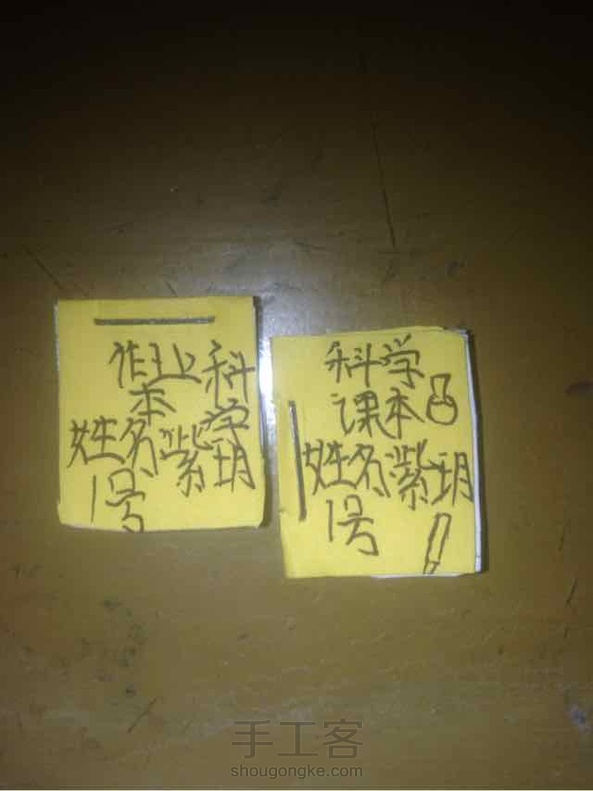 作业科
本学
姓名紫玥
1号
科学
课本
姓名紫玥
1号
手工客
shougongke.com